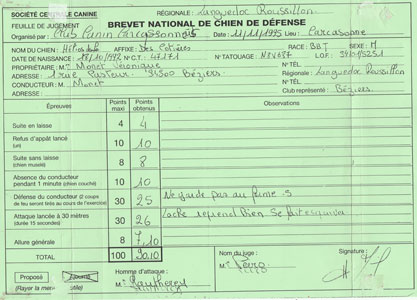 SOCIÉTÉ CENTRALE CANINE RÉGIONALE : Languedoc Roussillon
FEUILLE DE JUGEMENT BREVET NATIONAL DE CHIEN DE DÉFENSE
Organisé par : Club Canin Carcassonnais Date : 11/11/1995 Lieu : Carcassonne
NOM DU CHIEN : AFFIXE : Des RACE : BBT SEXE : M
DATE DE NAISSANCE : 18/10/1992 N° CT : 47171 N° TATOUAGE : L.O.F. :
PROPRIÉTAIRE : M Monet Véronique N° TÉL
ADRESSE : 1 rue Pasteur 34500 Béziers Régionale : Languedoc Roussillon
CONDUCTEUR : M Monet N° TÉL
ADRESSE : Club Régional : Béziers
Épreuves Points maxi Points obtenus Observations
Suite en laisse 4 4
Refus d'appât lancé (un) 10 10
Suite sans laisse (chien muselé) 8 8
Absence du conducteur pendant 1 minute (chien couché) 10 10
Défense du conducteur (2 coups de feu seront tirés au cours de l'exercice) 30 25 Ne garde pas au
Attaque lancée à 30 mètres (durée 15 secondes) 30 26 reprend bien se fait
Allure générale 8 7,10
TOTAL 100 90,10
Nom du juge : Signature :
Proposé Ajourné Homme d'attaque : M.
(Rayer la mention utile) M.